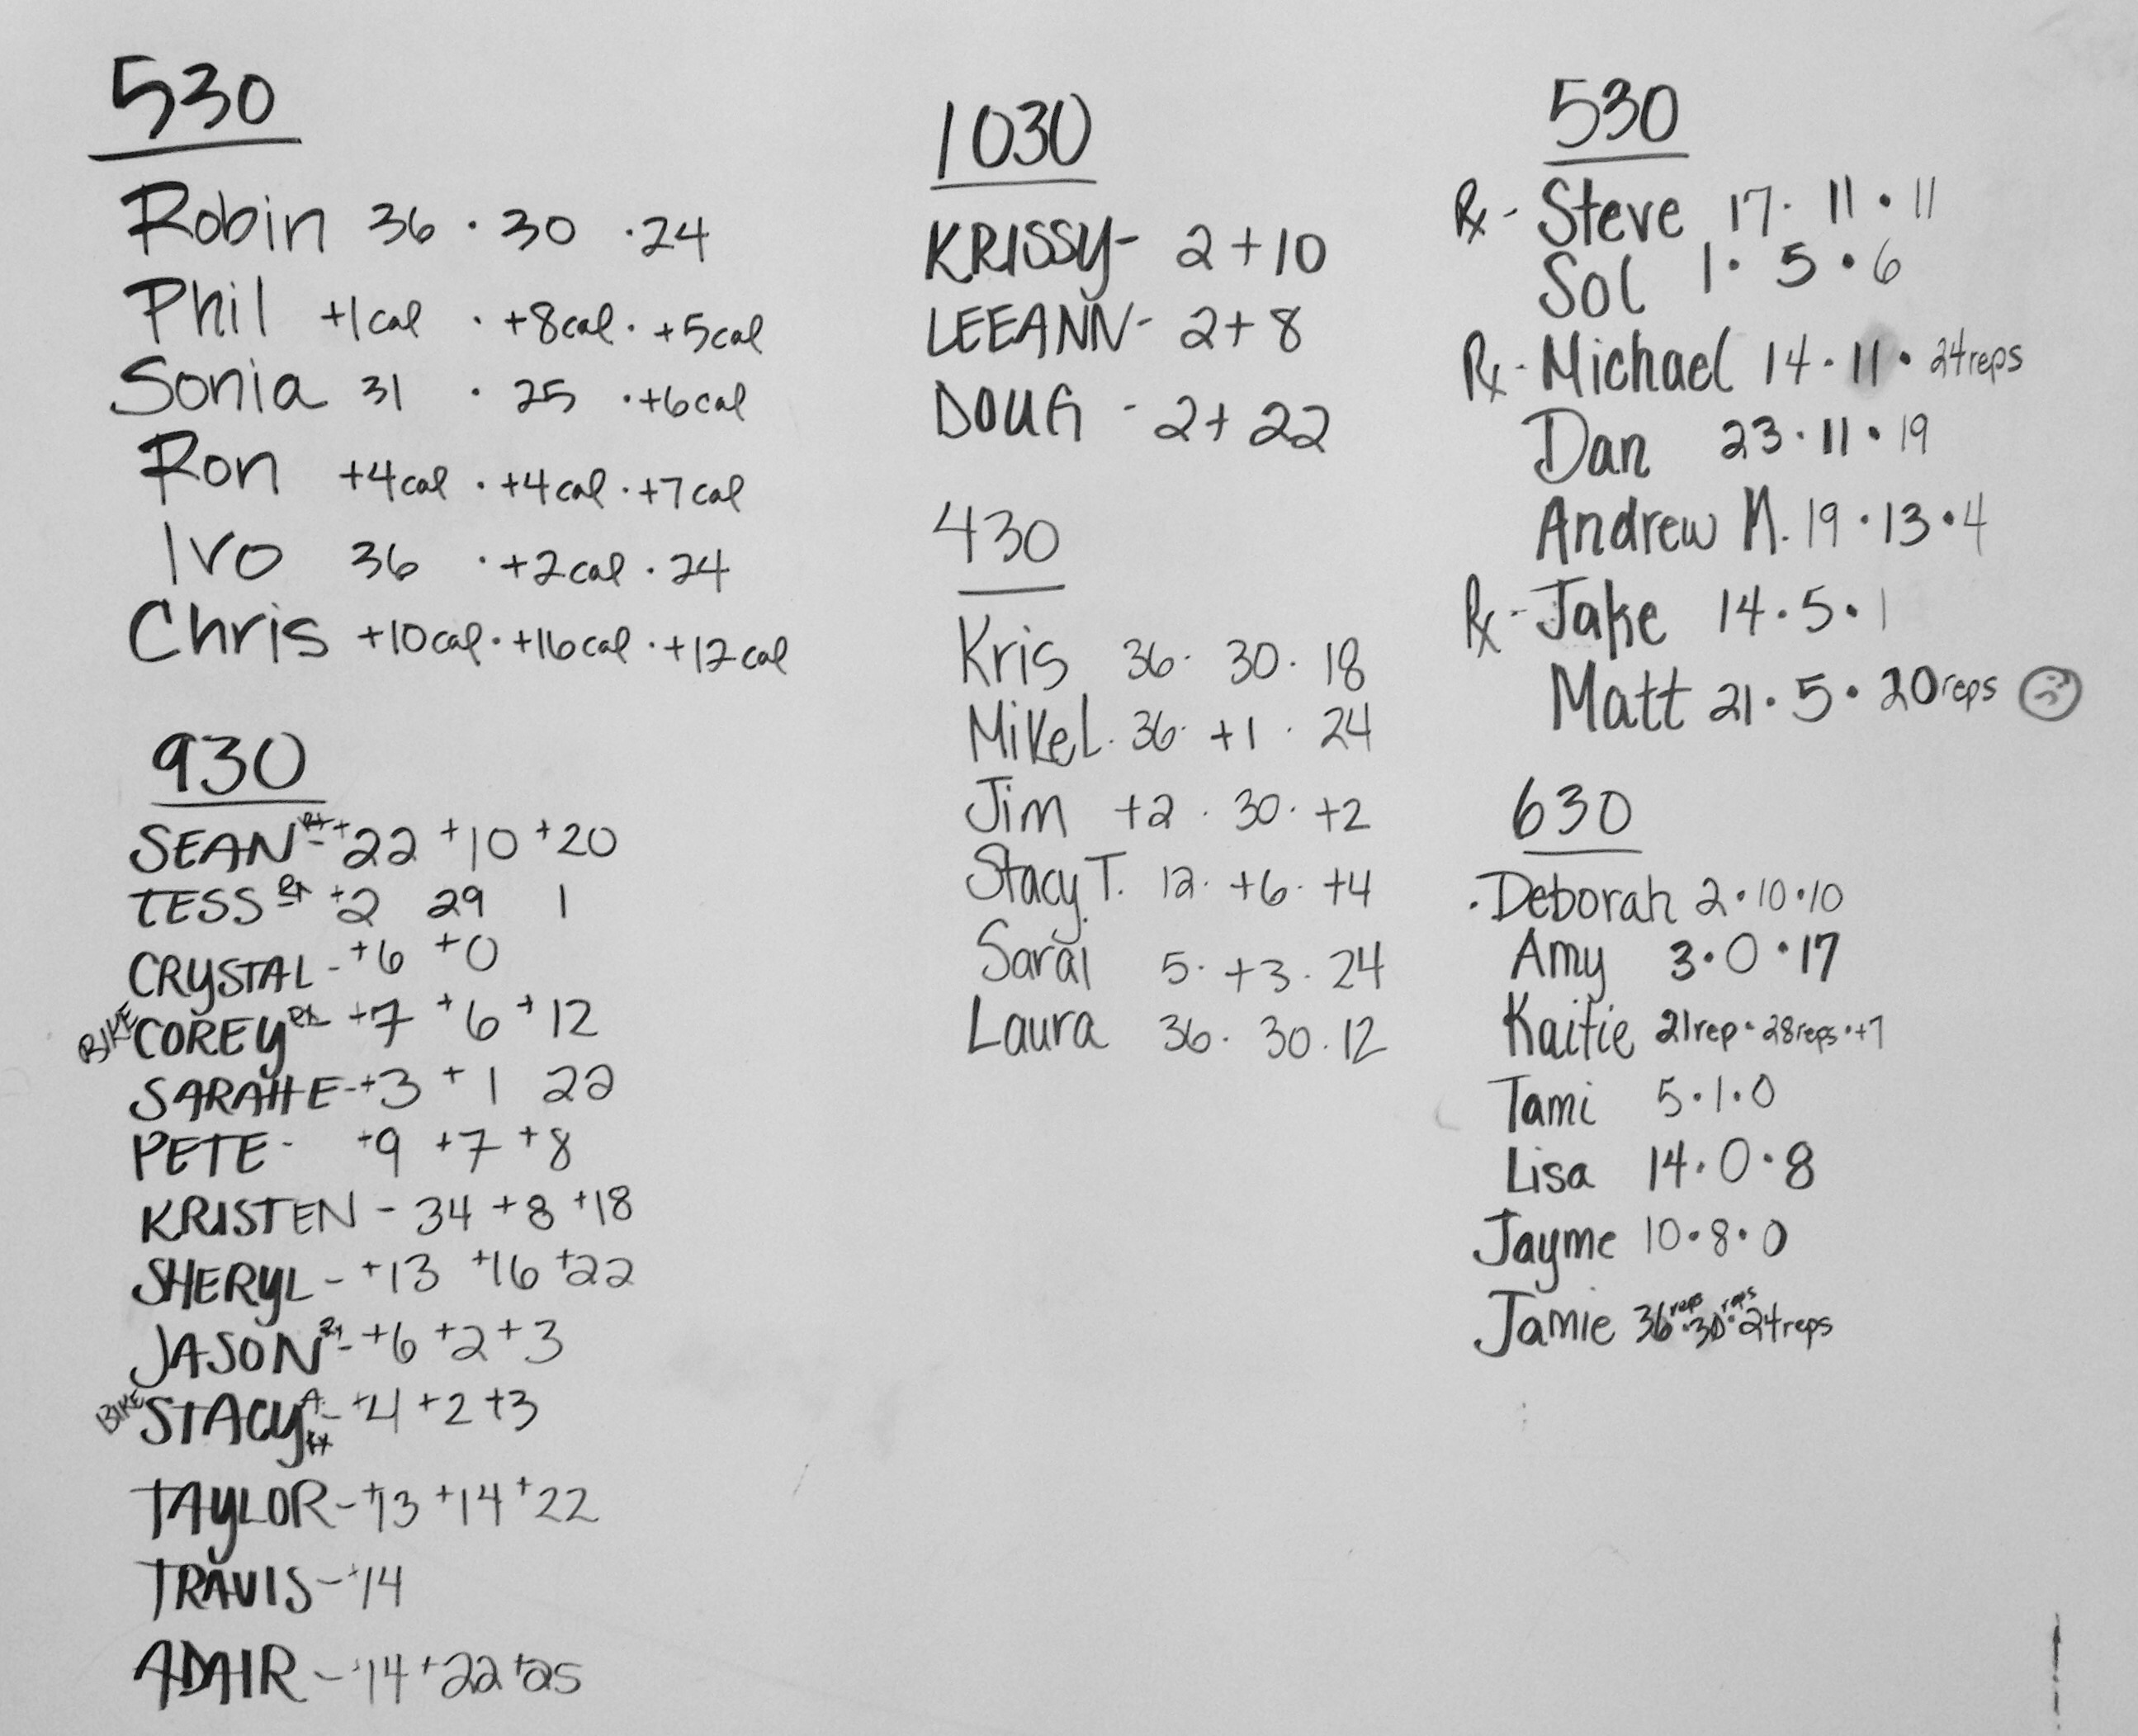 530
Robin 36 · 30 · 24
Phil +1cal · +8cal · +5cal
Sonia 31 · 25 · +6cal
Ron +4cal · +4cal · +7cal
Ivo 36 · +2cal · 24
Chris +10cal · +16cal · +12cal
930
SEAN Rx - +22 +10 +20
TESS Rx - +2 29 1
CRYSTAL - +6 +0
BIKE COREY Rx - +7 +6 +12
SARAH E - +3 +1 22
PETE - +9 +7 +8
KRISTEN - 34 +8 +18
SHERYL - +13 +16 +22
JASON Rx - +6 +2 +3
BIKE STACY A. Rx - +4 +2 +3
TAYLOR - +13 +14 +22
TRAVIS - +14
ADAIR - +14 +22 +25
1030
KRISSY - 2 + 10
LEEANN - 2 + 8
DOUG - 2 + 22
430
Kris 36 · 30 · 18
Mike L. 36 · +1 · 24
Jim +2 · 30 · +2
Stacy T. 12 · +6 · +4
Sarai 5 · +3 · 24
Laura 36 · 30 · 12
530
Rx - Steve 17 · 11 · 11
Sol 1 · 5 · 6
Rx - Michael 14 · 11 · 24reps
Dan 23 · 11 · 19
Andrew M. 19 · 13 · 4
Rx - Jake 14 · 5 · 1
Matt 21 · 5 · 20reps
630
· Deborah 2 · 10 · 10
Amy 3 · 0 · 17
Kaitie 21rep · 28reps · +7
Tami 5 · 1 · 0
Lisa 14 · 0 · 8
Jayme 10 · 8 · 0
Jamie 36reps · 30reps · 24reps